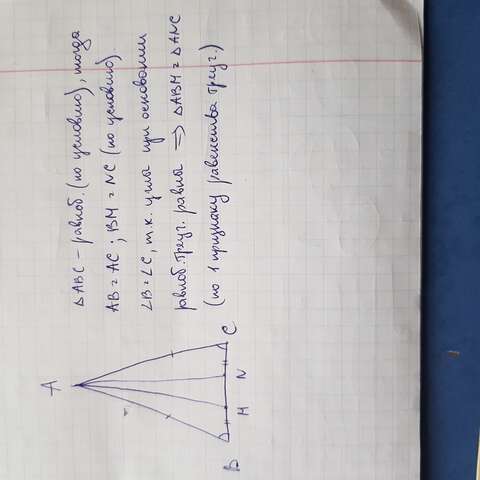 A
B
M
N
C
△ABC – равноб. (по условию), тогда
AB = AC ; BM = NC (по условию).
∠B = ∠C, т.к. углы при основании
равноб. треуг. равны ⇒ △ABM = △ANC
(по 1 признаку равенства треуг.)